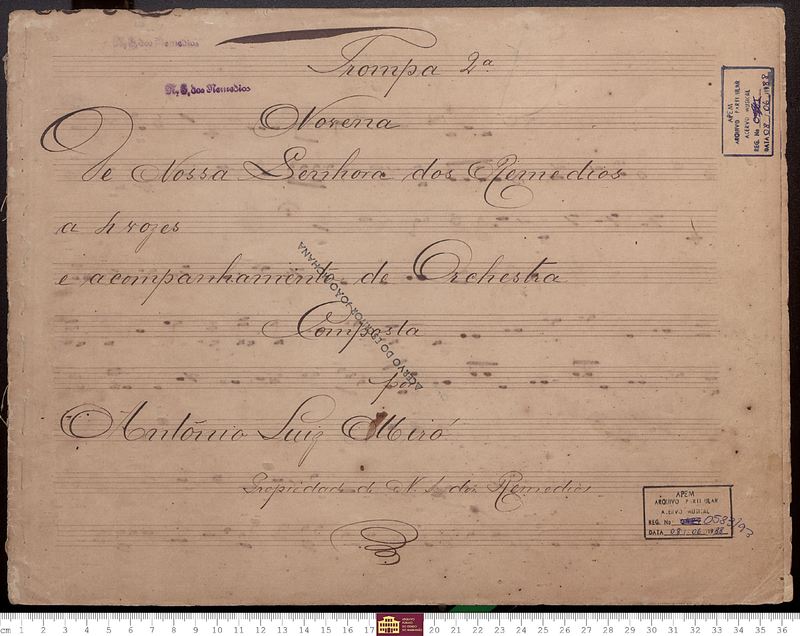 N. S. dos Remedios
N. S. dos Remedios
Trompa 2ª
Novena
De Nossa Senhora dos Remedios
a 4 vozes
e acompanhamento de Orchestra
Composta
por
Antônio Luiz Miró
Propiedade de N. S. dos Remedios
ACERVO DO ESCRITOR JOÃO MOHANA
APEM
ARQUIVO PARTICULAR
ACERVO MUSICAL
REG. No
DATA 08 / 06 / 1988
APEM
ARQUIVO PARTICULAR
ACERVO MUSICAL
REG. No 0583/93
DATA 08 / 06 / 1988
cm 1 2 3 4 5 6 7 8 9 10 11 12 13 14 15 16 17 20 21 22 23 24 25 26 27 28 29 30 31 32 33 34 35 36